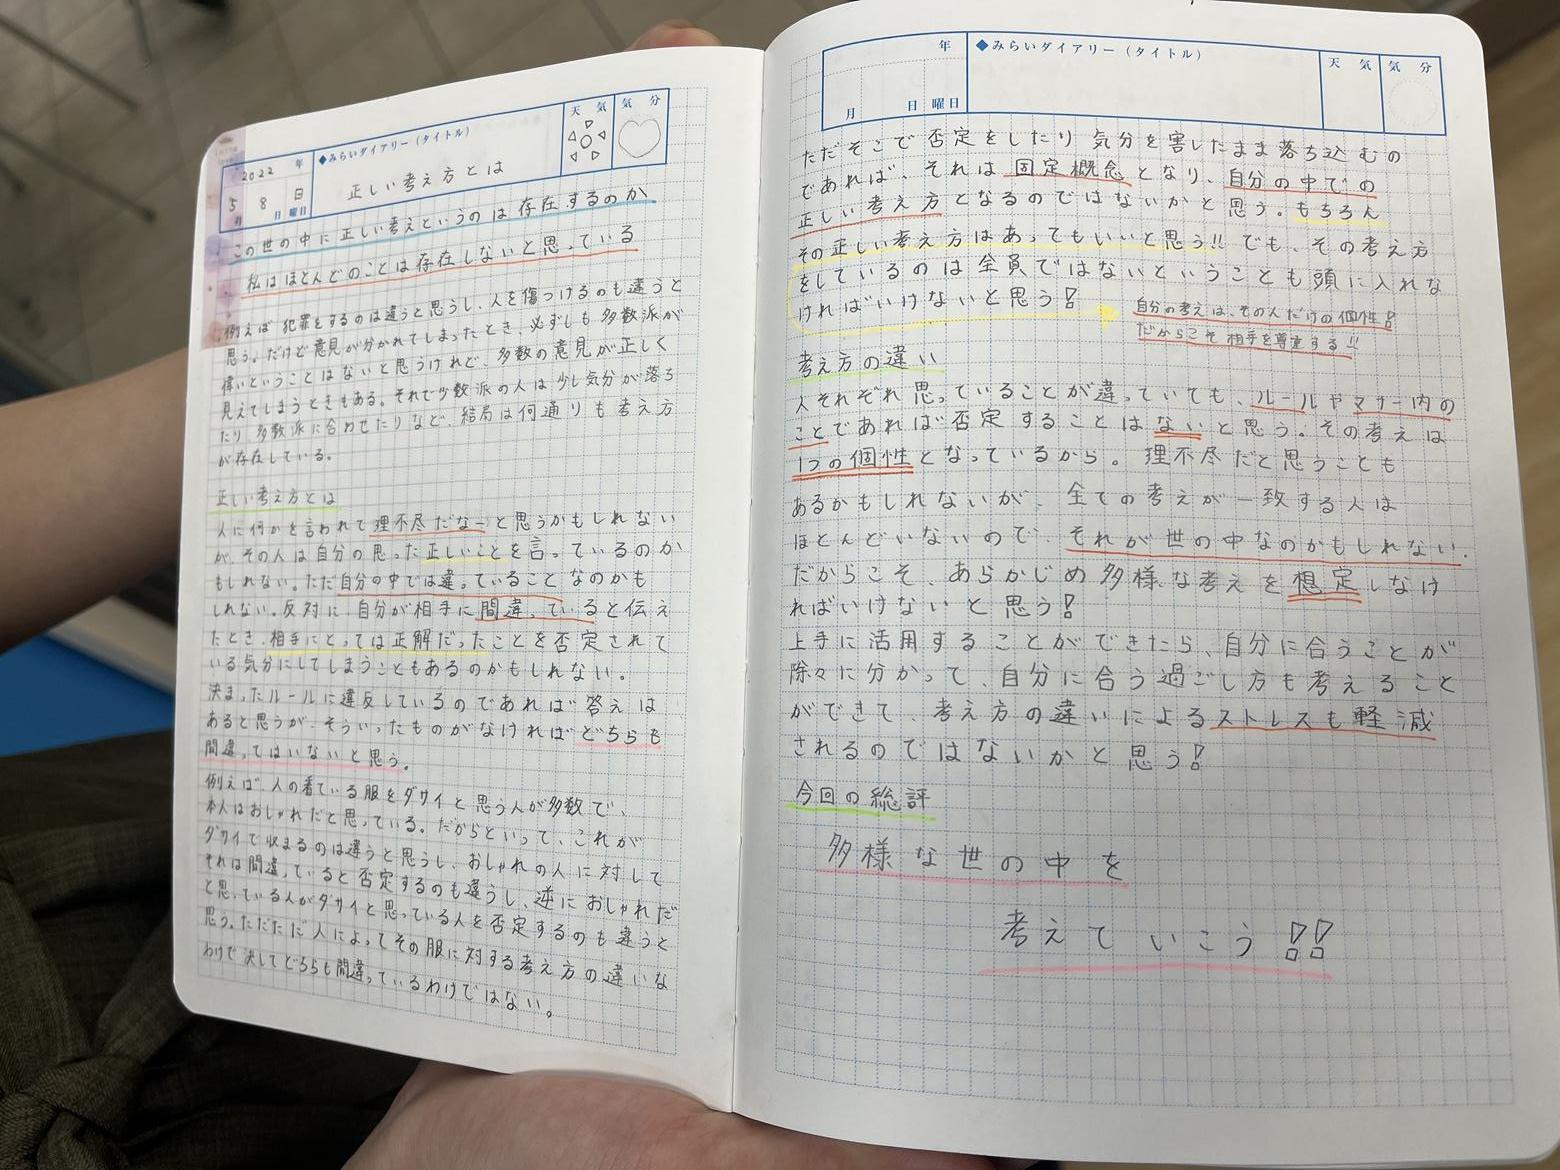 2022 年
5 月 8 日 日 曜日
◆みらいダイアリー（タイトル）
正しい考え方とは
天 気
気 分
この世の中に正しい考えというのは存在するのか
私はほとんどのことは存在しないと思っている
例えば犯罪をするのは違うと思うし、人を傷つけるのも違うと
思う。だけど意見が分かれてしまったとき、必ずしも多数派が
偉いということはないと思うけれど、多数の意見が正しく
見えてしまうときもある。それで少数派の人は少し気分が落ち
たり多数派に合わせたりなど、結局は何通りも考え方
が存在している。
正しい考え方とは
人に何かを言われて理不尽だなーと思うかもしれない
が、その人は自分の思った正しいことを言っているのか
もしれない。ただ自分の中では違っていることなのかも
しれない。反対に、自分が相手に間違っていると伝え
たとき、相手にとっては正解だったことを否定されて
いる気分にしてしまうこともあるのかもしれない。
決まったルールに違反しているのであれば答えは
あると思うが、そういったものがなければどちらも
間違ってはいないと思う。
例えば人の着ている服をダサイと思う人が多数で、
本人はおしゃれだと思っている。だからといって、これが
ダサイで収まるのは違うと思うし、おしゃれの人に対して
それは間違っていると否定するのも違うし、逆におしゃれだ
と思っている人がダサイと思っている人を否定するのも違うと
思う。ただただ人によってその服に対する考え方の違いな
わけで決してどちらも間違っているわけではない。
年
月 日 曜日
◆みらいダイアリー（タイトル）
天 気
気 分
ただそこで否定をしたり気分を害したまま落ち込むの
であれば、それは固定概念となり、自分の中での
正しい考え方となるのではないかと思う。もちろん
その正しい考え方はあってもいいと思う!! でも、その考え方
をしているのは全員ではないということも頭に入れな
ければいけないと思う!
自分の考えは、その人だけの個性!
だからこそ相手を尊重する!!
考え方の違い
人それぞれ思っていることが違っていても、ルールやマナー内の
ことであれば否定することはないと思う。その考えは
1つの個性となっているから。理不尽だと思うことも
あるかもしれないが、全ての考えが一致する人は
ほとんどいないので、それが世の中なのかもしれない.
だからこそ、あらかじめ多様な考えを想定しなけ
ればいけないと思う!
上手に活用することができたら、自分に合うことが
除々に分かって、自分に合う過ごし方も考えること
ができて、考え方の違いによるストレスも軽減
されるのではないかと思う!
今回の総評
多様な世の中を
考えていこう!!